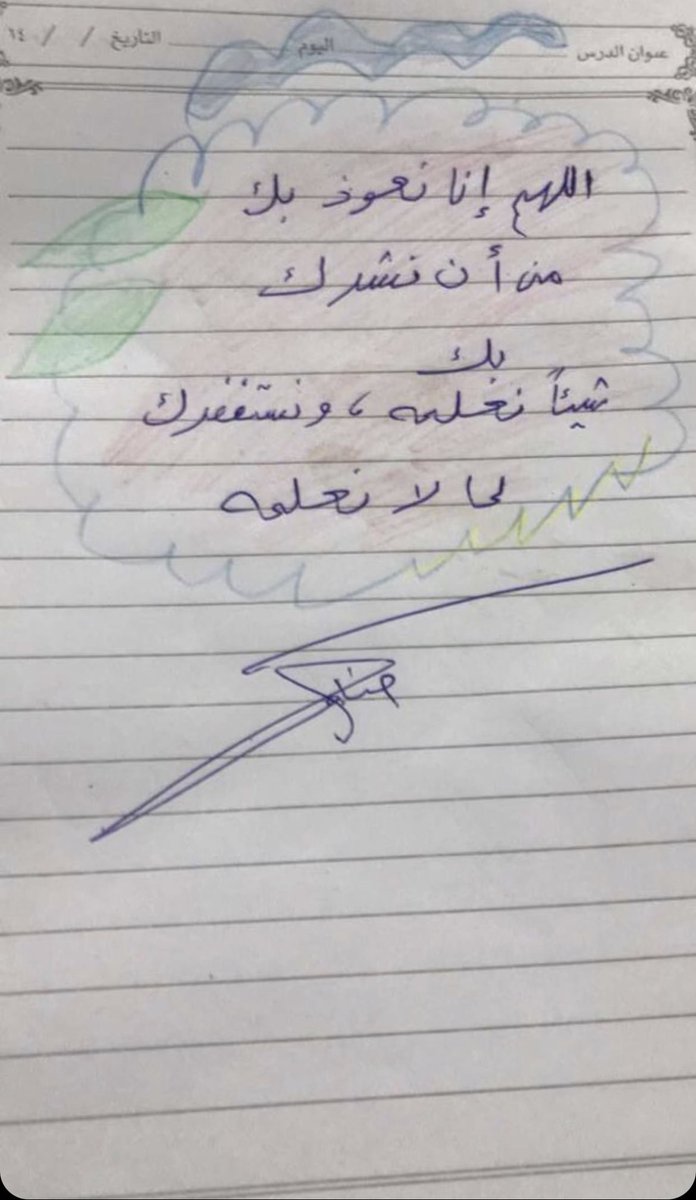 عنوان الدرس اليوم التاريخ / / ١٤
اللهم إنا نعوذ بك
من أن نشرك
بك
شيئاً نعلمه ، ونستغفرك
لما لا نعلمه